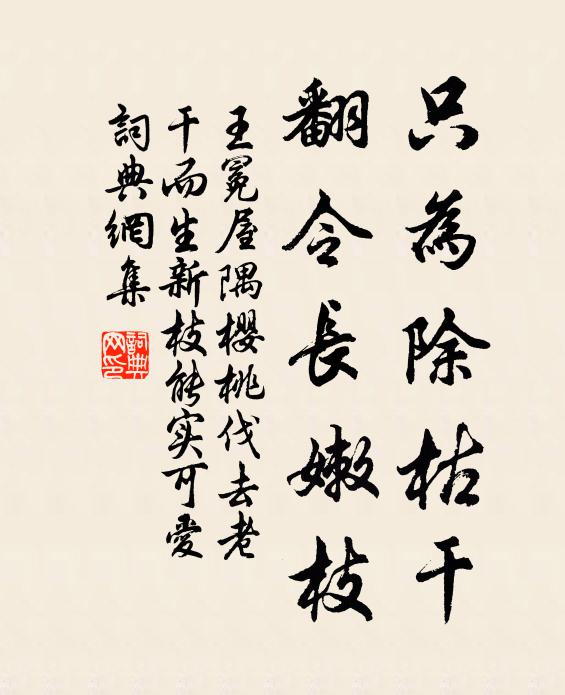 只為除枯干
翻令長嫩枝
王冕屋隅櫻桃伐去老
干而生新枝能实可愛
詞典網集
詞典
网印